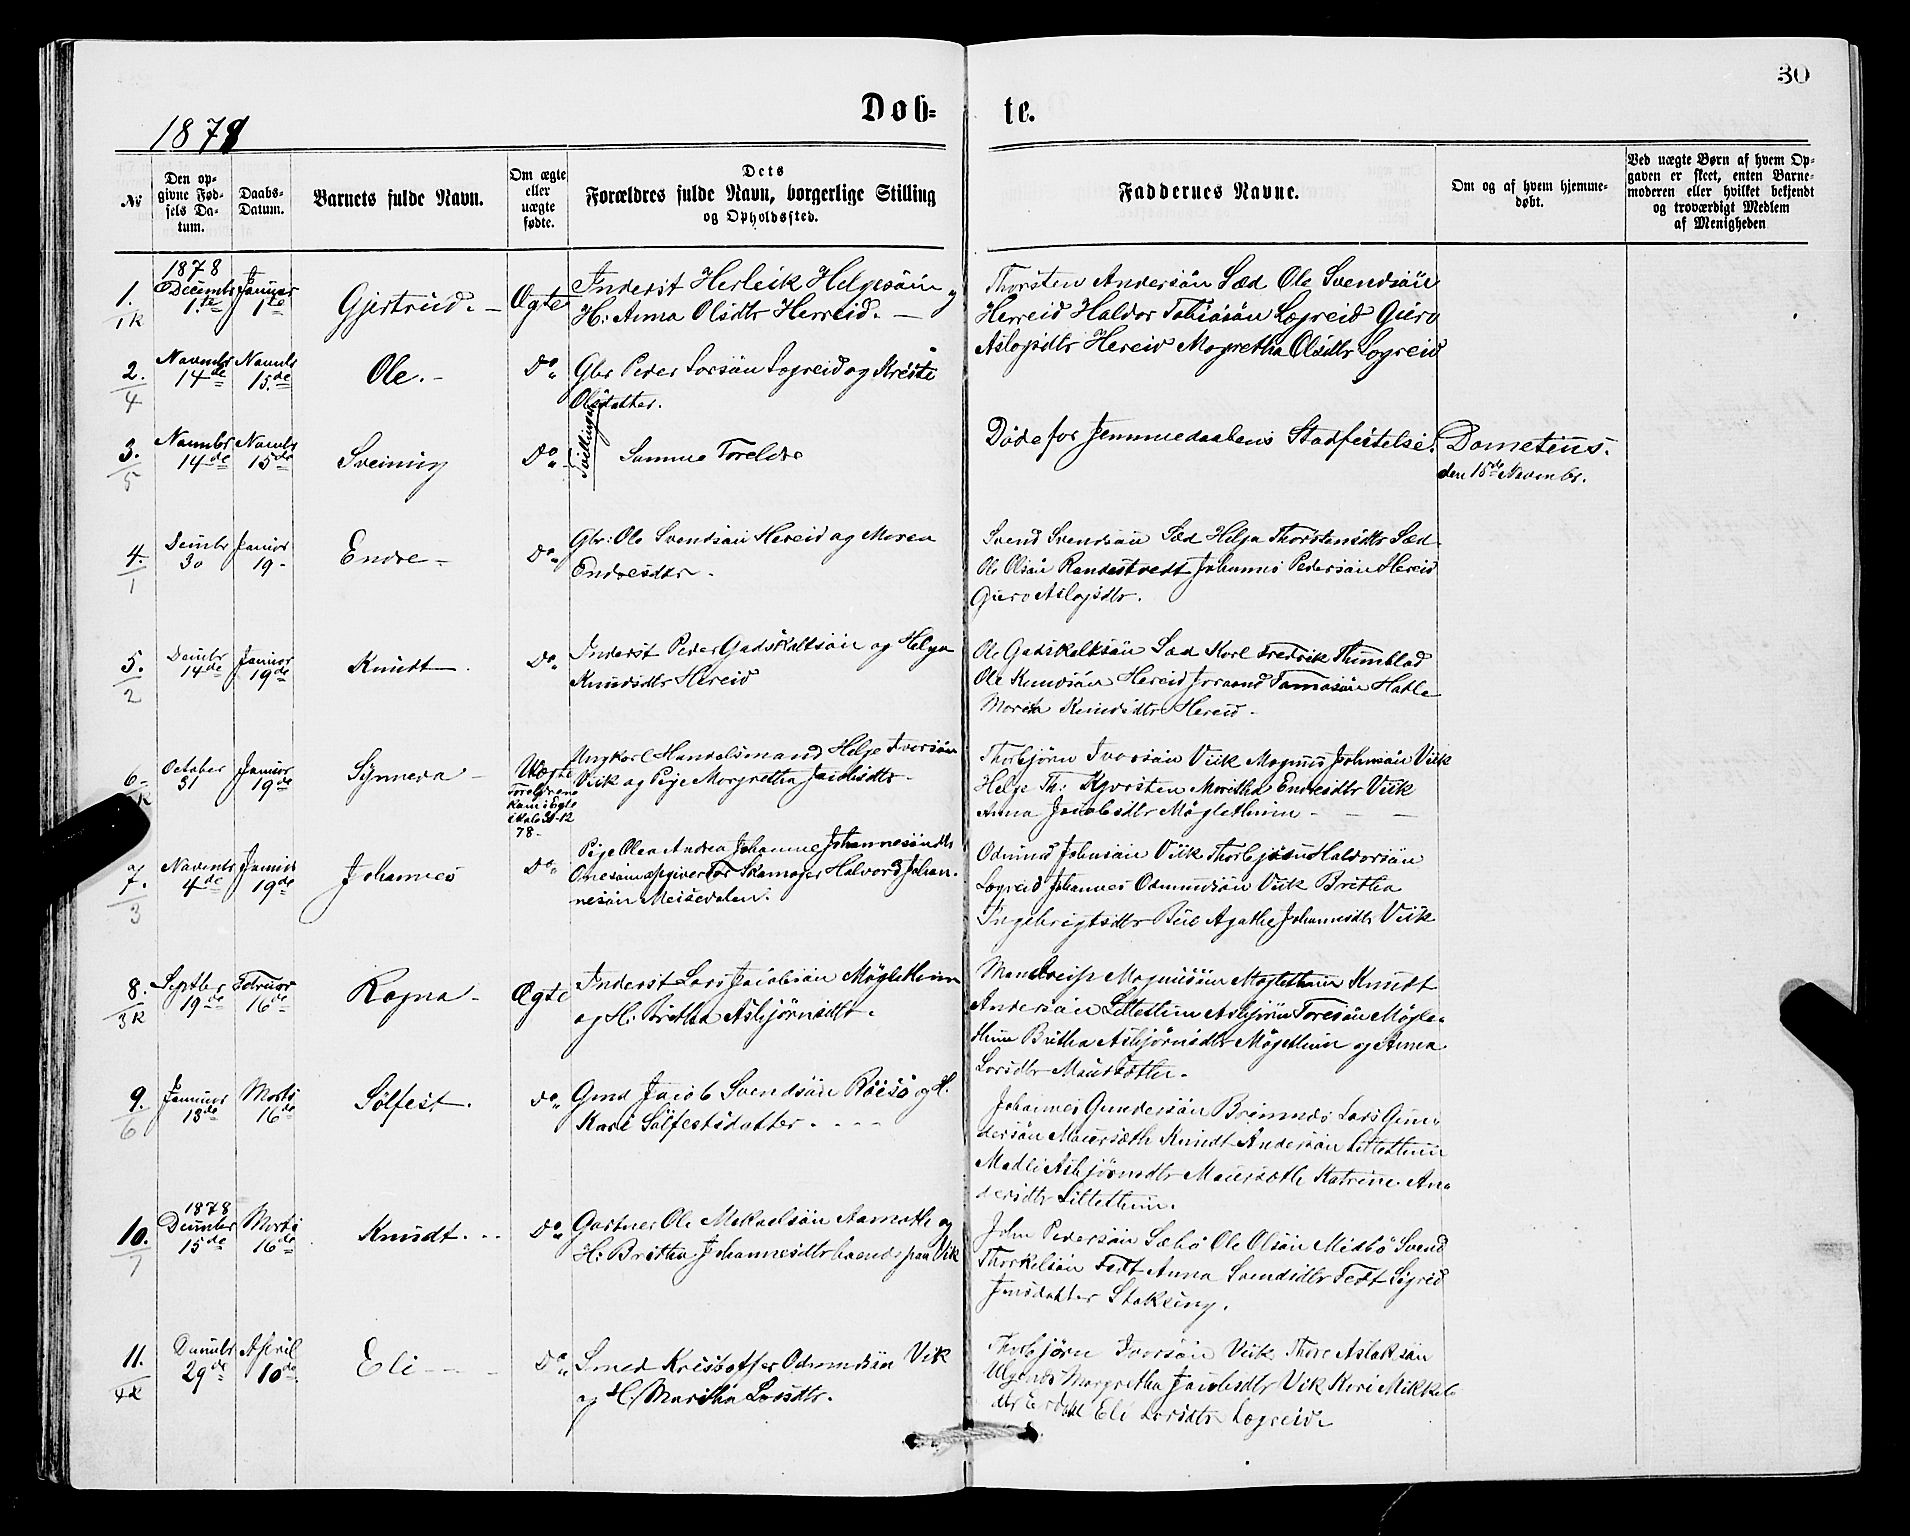 30
Døb- te.
1879
№
Den op-
givne Fød-
sels Da-
tum.
Daabs-
Datum.
Barnets fulde Navn.
Om ægte
eller
uægte
fødte.
Dets
Forældres fulde Navn, borgerlige Stilling
og Opholdssted.
Faddernes Navne.
Om og af hvem hjemme-
døbt.
Ved uægte Børn af hvem Op-
gaven er skeet, enten Barne-
moderen eller hvilket bekjendt
og troværdigt Medlem
af Menigheden
1.
1k
1878
Decembr
1.te
Januar
1te
Gjertrud. -
Ægte
Inderst Herleik Helgesön og
H: Anna Olsdtr Herreid. -
Thorsten Andersön Sæd Ole Svendsön
Herreid Haldor Tobiasön Lægreid Guro
Aslagsdtr Hereid Magretha Olsdtr Lægreid
2.
4
Novembr
14de
Novmbr
15.de
Ole. -
Do„
Gbr Peder Larsön Lægreid og Kristi
Olsdatter.
3.
5
Novembr
14de
Novmbr
15de
Sveinung
Do„
Tvillinger
Samme Foreldre
Döde før Jemmedaabens Stadfestelse.
Dometius.
den 15de Novembr.
4.
1
Decmbr
30
Januar
19 -
Endre -
Do„
Gbr: Ole Svendsön Hereid og Maren
Endresdtr -
Svend Svendsön Sæd Helga Thorstensdtr Sæd
Ole Olsön Randestvedt Johannes Pedersön Hereid
Guro Aslagsdtr.
5.
2
Decmbr
14de
Januar
19de
Knudt
Do„
Inderst Peder Gadskaltsön og Helga
Knudsdtr Hereid
Ole Gadskaltsön Sæd Karl Fredrik Thunblad
Ole Knudsön Hereid Joraand Tomasön Hatle
Maritha Knudsdtr Hereid -
6
October
31
Januar
19de
Synneva -
Uægte
Foreldrene
kom i Egte
skab 31-12
78 -
Ungkarl Handelsmand Helge Ivarsön
Viik og Pige Margretha Jacobsdtr -
Thorbjörn Ivarsön Viik Magnus Johnsön Viik
Helge Th: Kjærsten Maritha Endresdtr Viik
Anna Jacobsdtr Möglethuun - - -
7.
3
Novembr
4de
Januar
19de
Johannes
Do„
Pige Olea Andrea Johanne Johannesöndtr
Onesön opgiver Far Skamager Halvord Johan-
nesön Meisedalen.
Odmund Johnsön Viik Thorbjörn Haldorsön
Lægreid Johannes Odmundsön Viik Britha
Ingebrigtsdtr Bue Agathe Johannesdtr Viik
8.
3k
Septbr
19de
Februar
16de
Ragna -
Ægte
Inderst Lars Jacobsön Möglethuun
og H: Britha Asbjörnsdtr.
Magnusön Möglethuun Knudt
Andersön Littlethun Asbjörn Toresön Mögle-
thuun Britha Asbjörnsdtr Möglethuun og Anna
Larsdtr Maursæthr.
9.
6
Januar
18de
Marts
16de
Sölfest.
Do„
Gmd Jacob Svendsön Röisö og H.
Kari Sölfestsdatter. - - -
Johannes Gundersön Brimnes Lars Gun-
dersön Maursæth Knudt Andersön Littlethun
Madli Asbjörnsdtr Maursæth Katrine An-
dersdtr Littlethun.
10.
7
1878
Decmbr
15de
Marts
16de
Knudt. - -
Do„
Gartner Ole Mikaelsön Aamoth og
H: Britha Johannesdtr boende paa Vik
John Pedersön Sæbö Ole Olsön Midbö Svend
Thorkelsön Tvedt Anna Svendsdtr Tvedt Sigrid
Jonsdatter Stokseng.
11.
4k
Decmbr
29de
April
10de
Eli - -
Do„
Smed Kristoffer Odmundsön Vik
og H: Maritha Larsdtr.
Thorbjörn Ivarsön Viik Thore Aslaksön
Margretha Jacobsdtr Vik Kari Mikkels
dtr Erdal Eli Larsdtr Lægreid